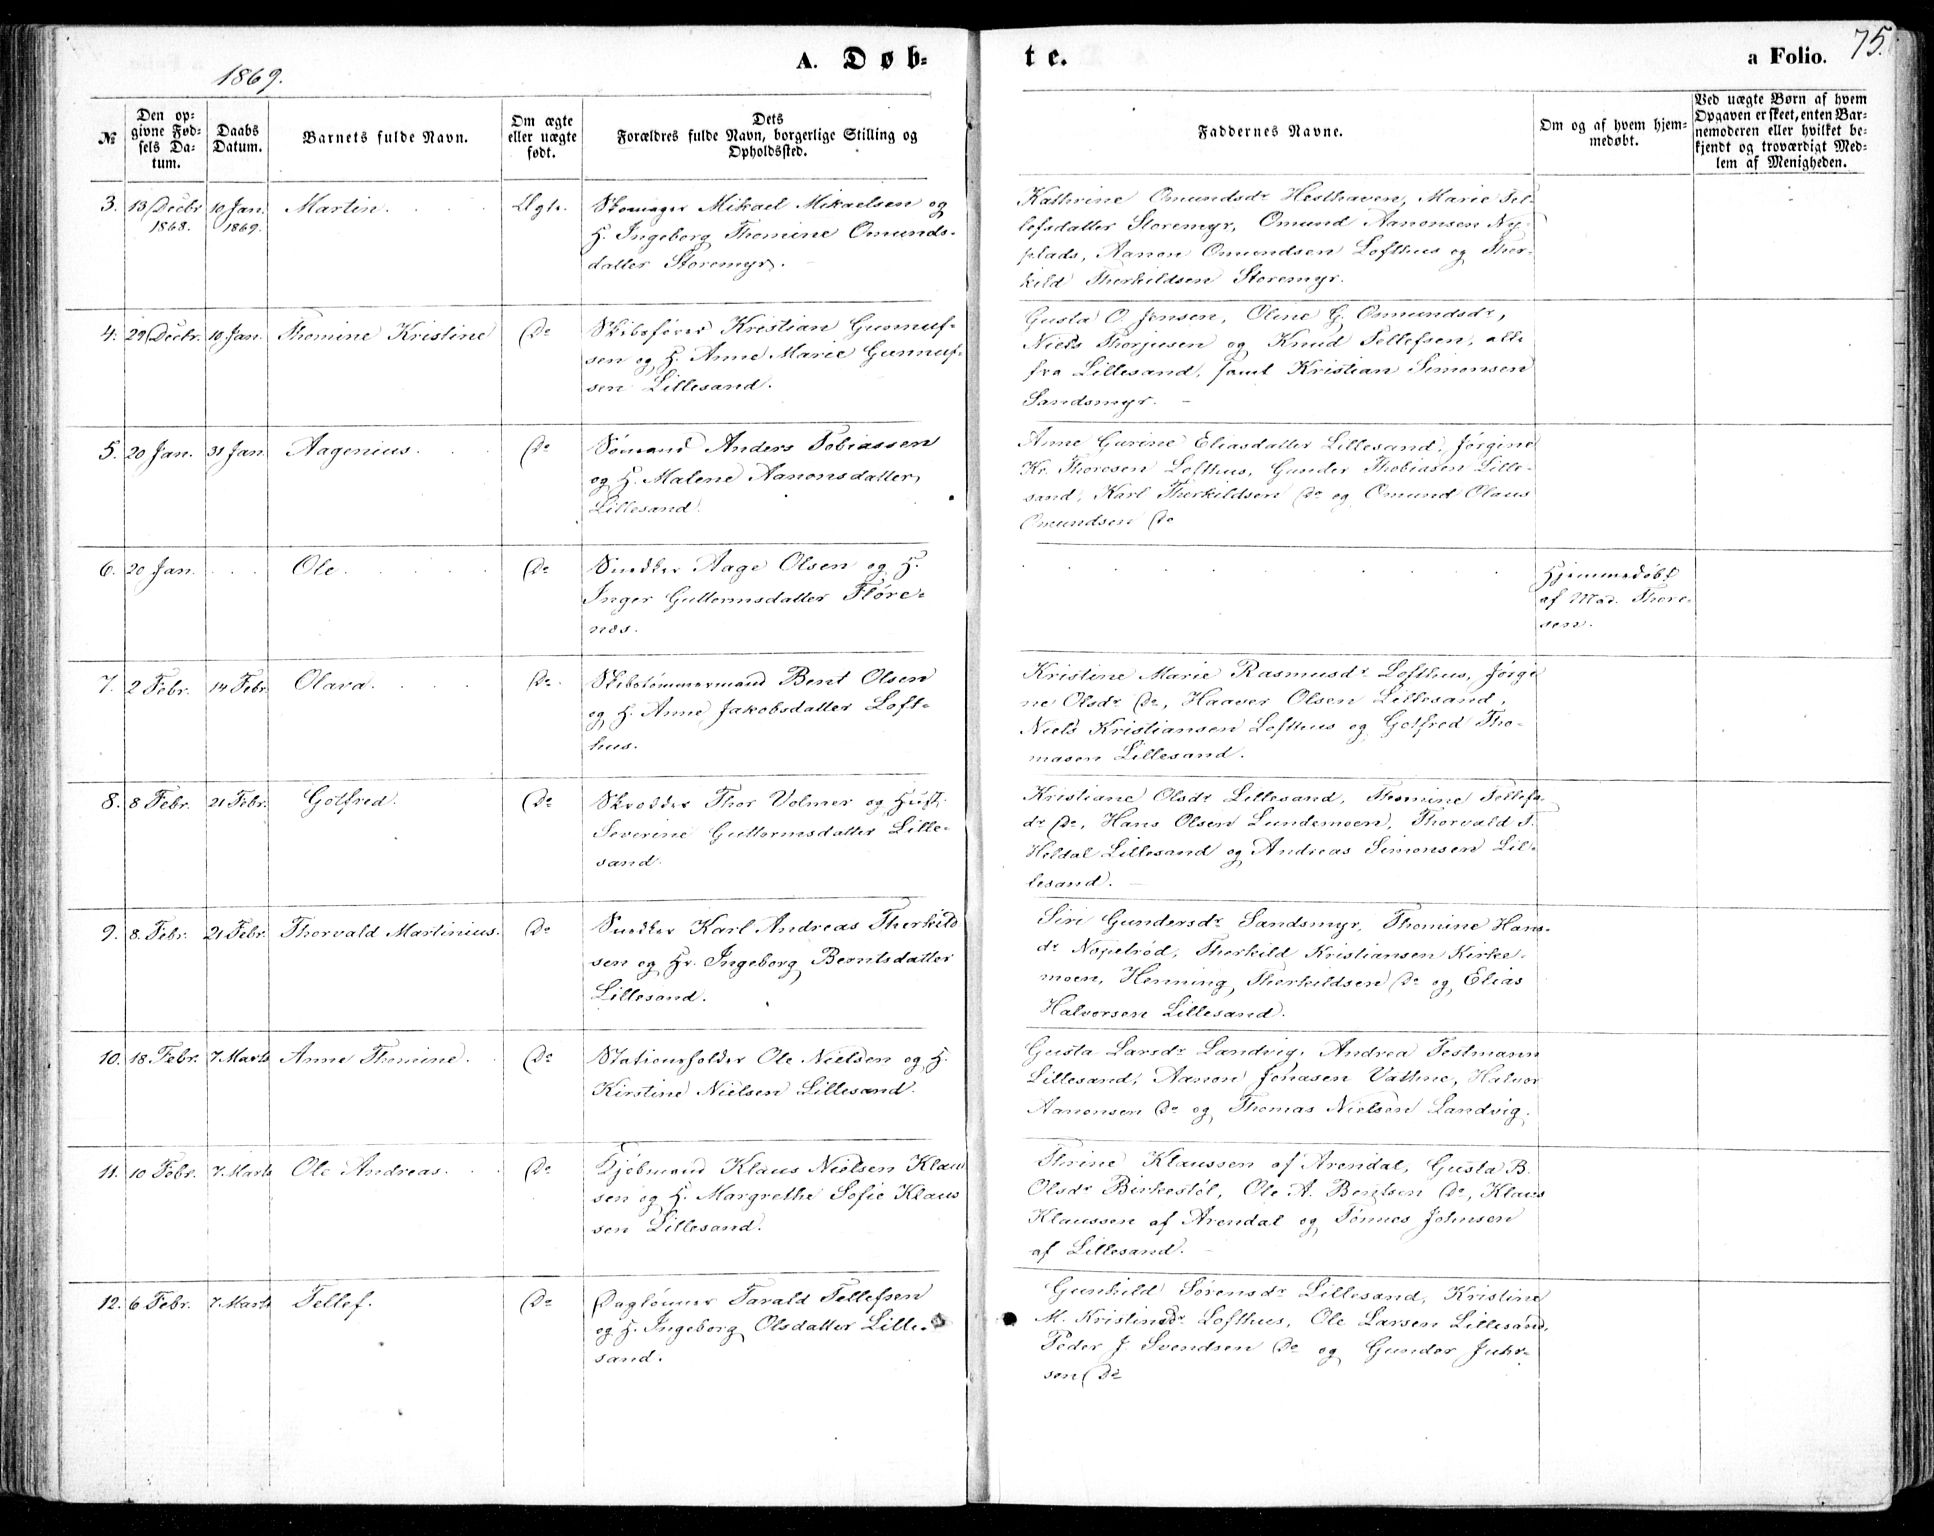 75.
1869.
A. Døb-
te.
a Folio.
№
Den op-
givne Fød-
sels Da-
tum.
Daabs
Datum.
Barnets fulde Navn.
Om ægte
eller uægte
født.
Dets
Forældres fulde Navn, borgerlige Stilling og
Opholdssted.
Faddernes Navne.
Om og af hvem hjem-
medøbt.
Ved uægte Børn af hvem
Opgaven er skeet, enten Bar-
nemoderen eller hvilket be-
kjendt og troværdigt Med-
lem af Menigheden.
3. 13 Decbr 10 Jan. Martin. Ægte. Skomager Mikael Mikaelsen og
1868. 1869.
H. Ingeborg Thomine Omunds-
datter Storemyr.
Kathrine Omundsdr Hesthaven, Marie Tel-
lefsdatter Storemyr, Omund Aanonsen Ny-
plads, Aanon Omundsen Lofthus og Ther-
kild Therkildsen Storemyr.
4. 29 Decbr. 10 Jan. Thomine Kristine Do Skibsfører Kristian Gunnuf-
sen og H. Anne Marie Gunnuf-
sen Lillesand.
Gusta O. Jensen, Oline G. Omundsdr,
Niels Thorjusen og Knud Tellefsen, alle
fra Lillesand, samt Kristian Simonsen
Sandsmyr.
5. 20 Jan. 31 Jan. Aagenius. Do Sømand Anders Tobiassen
og H. Malene Aanonsdatter
Lillesand.
Anne Gurine Eliasdatter Lillesand, Jørgine
Kr. Thoresen Lofthus, Gunder Thobiasen Lille-
sand, Karl Therkildsen Do og Omund Olaus
Omundsen Do
6. 20 Jan. Ole. Do Snedker Aage Olsen og H.
Inger Guttormsdatter Flöre-
næs.
Hjemmedøbt
af Mad. Thore-
sen.
7. 2 Febr. 14 Febr. Olava. Do. Skibstømmermand Bent Olsen
og H. Anne Jakobsdatter Loft-
hus.
Kristine Marie Rasmusdr Lofthus, Jørgi-
ne Olsdr Do, Haaver Olsen Lillesand,
Niels Kristiansen Lofthus og Gotfred Tho-
masen Lillesand.
8. 8 Febr. 21 Febr. Gotfred. Do Skrædder Thor Volmer og Hust.
Severine Guttormsdatter Lille-
sand.
Kristiane Olsdr Lillesand, Thomine Tellefs-
dr Do, Hans Olsen Lundemoen, Thorvald T.
Heldal Lillesand og Andreas Simonsen Lil-
lesand.
9. 8. Febr. 21 Febr. Thorvald Martinius. Do Snedker Karl Andreas Therkild
sen og Hr. Ingeborg Berntsdatter
Lillesand.
Siri Gundersdr Sandsmyr, Thomine Hans-
dr Nopelrød, Therkild Kristiansen Kirke-
moen, Henning Therkildsen Do og Elias
Halvorsen Lillesand.
10. 18 Febr. 7 Marts Anne Thomine. Do Stationsholder Ole Nielsen og H.
Kirstine Nielsen Lillesand.
Gusta Larsdr Landvig, Andrea Testmann
Lillesand, Aanon Jonasen Vathne, Halvor
Aanonsen Do og Thomas Nielsen Landvig.
11. 10 Febr. 7 Marts Ole Andreas. Do Kjøbmand Klaus Nielsen Klaus
sen og H. Margrethe Sofie Klaus
sen Lillesand.
Thrine Klaussen af Arendal, Gusta B.
Olsdr Birkestöl, Ole A. Bentsen Do, Klaus
Klaussen af Arendal og Tønnes Johnsen
af Lillesand.
12. 6 Febr. 7 Marts Tellef. Do Dagløuner Tarald Tellefsen
og H. Ingeborg Olsdatter Lille-
sand.
Gunhild Sørensdr Lillesand, Kristine
M. Kristinsdr Lofthus, Ole Larsen Lillesand,
Peder J. Svendsen Do og Gunder Juhr-
sen Do